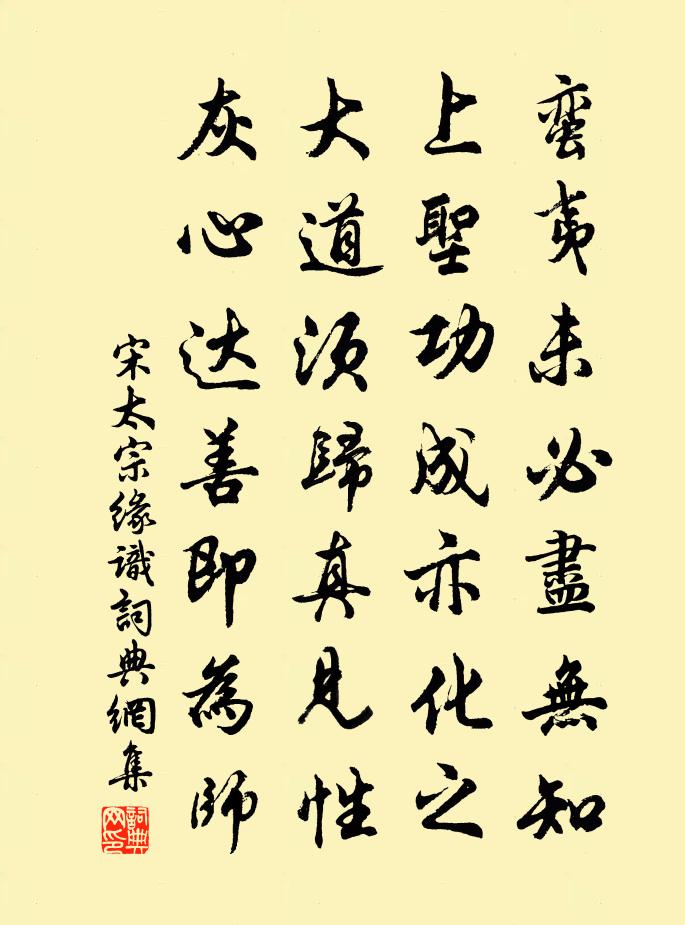 蛮夷未必盡無知
上聖功成亦化之
大道须歸真見性
灰心达善即為師
宋太宗缘識詞典網集
詞典网印